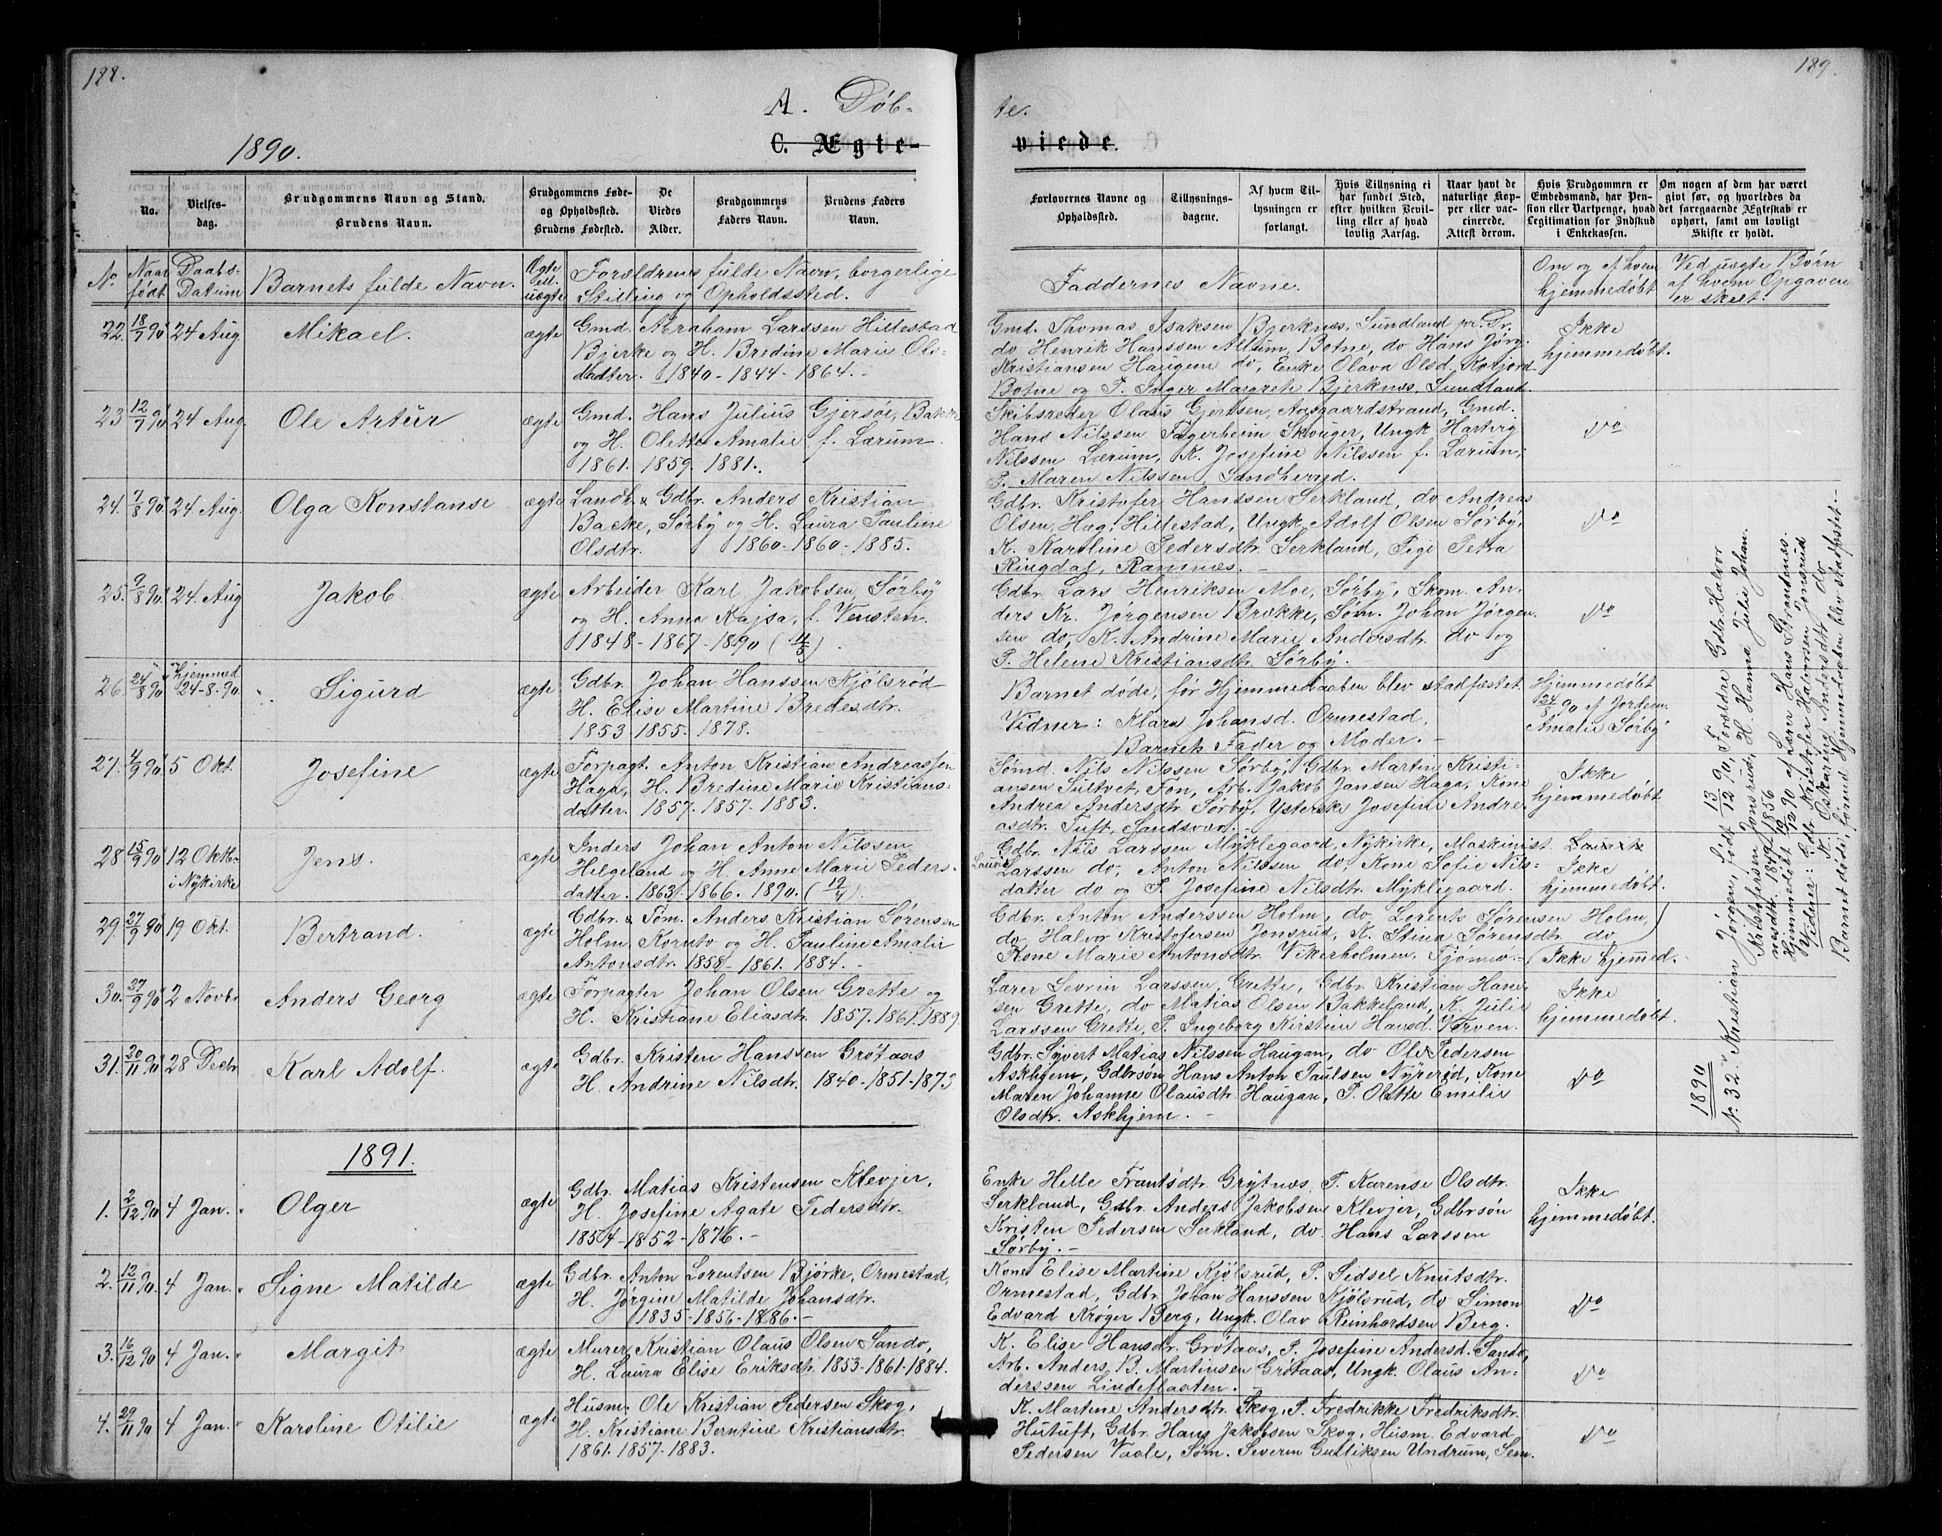 188.
A. Døb-
1890.
C. Ægte-
No.
Vielses-
dag.
Brudgommens Navn og Stand.
Brudens Navn.
Brudgommens Føde-
og Opholdssted.
Brudens Fødested.
De
Viedes
Alder.
Brudgommens
Faders Navn.
Brudens Faders
Navn.
No.
Naar
født
Daabs-
Datum
Barnets fulde Navn.
Ægte
ell.
uægte
Forældrenes fulde Navn, borgerlige
Stilling og Opholdssted.
22. 18/7 90 24 Aug. Mikael. ægte Gmd. Abraham Larssen Hillestad
Bjerke og H. Bredine Marie Ols-
datter. 1840 - 1844 - 1864. -
23 12/7 90 24 Aug. Ole Artur ægte Gmd. Hans Julius Gjersøe, Bakke
og H. Olette Amalie f. Lærum.
1861. 1859. 1881.
24. 7/8 90 24 Aug. Olga Konstanse ægte Landh. & Gdbr. Anders Kristian
Bakke, Sørby og H. Laura Pauline
Olsdtr. 1860 - 1860 - 1885.
25. 9/8 90 24. Aug Jakob ægte Arbeider Karl Jakobsen, Sørby
og H. Anna Kajsa, f. Vensten.
1848 - 1867 - 1890 (4/5)
26. 24/8 90 Hjemmed
24-8-90 Sigurd ægte Gdbr. Johan Hanssen Kjølsrød
H. Elise Martine Bredesdtr.
1853. 1855. 1878.
27. 4/9 90 5 Okt. Josefine ægte Forpagt. Anton Kristian Andreassen
Haga, H. Bredine Marie Kristians-
datter. 1857. 1857. 1883.
28 15/9 90 12 Oktbr.
i Nykirke Jens. ægte Inders Johan Anton Nilssen
Helgeland og H. Anne Marie Peders-
datter. 1863. 1866. 1890. (19/4)
29. 27/9 90 19 Okt. Bertrand. ægte Gdbr. & Tøm. Anders Kristian Sørensen
Holm, Kornto og H. Pauline Amalie
Antonsdtr. 1858 - 1861. 1884. -
30. 27/9 90 2 Novbr. Anders Georg ægte Forpagter Johan Olsen Grette og
H. Kristiane Eliasdtr. 1857. 1861. 1889.
31. 20/11 90 28 Decbr. Karl Adolf. ægte Gdbr. Kristen Hanssen Grøtaas
H. Andrine Nilsdtr. 1840 - 1851 - 1873
1891.
1. 2/12 90 4 Jan. Olger ægte Gdbr. Matias Kristensen Klevjer,
H. Josefine Agate Pedersdtr.
1854 - 1852 - 1876. -
2. 12/11 90 4 Jan. Signe Matilde ægte Gdbr. Anton Lorentsen Bjørke, Ormestad,
H. Jørgine Matilde Johansdtr.
1835 - 1856 - 1886. -
3. 16/12 90 4 Jan. Margit ægte Murer Kristian Olaus Olsen Sando,
H. Laura Elise Eriksdtr. 1853. 1861. 1884.
4. 29/11 90 4 Jan. Karoline Otilie ægte Husm. Ole Kristian Pedersen Skog,
H. Kristiane Berntine Kristiansdtr.
1861. 1857. 1883.
189.
te.
viede.
Forlovernes Navne og
Opholdssted.
Tillysnings-
dagene.
Af hvem Til-
lysningen er
forlangt.
Hvis Tillysning ei
har fundet Sted,
efter hvilken Bevil-
ling eller af hvad
lovlig Aarsag.
Naar havt de
naturlige Kop-
per eller vac-
cinerede.
Attest derom.
Hvis Brudgommen er
Embedsmand, har Pen-
sion eller Vartpenge, hvad
Legitimation for Indskud
i Enkekassen.
Om nogen af dem har været
gift før, og hvorledes da
det foregaaende Ægteskab er
ophørt, samt om lovligt
Skifte er holdt.
Faddernes Navne.
Om og af hvem
hjemmedøbt
Ved uægte Børn
af hvem Opgaven
er skeet
Gmd. Thomas Isaksen Bjerknes, Sundland pr. Dr.
do Henrik Hanssen Allum, Botne, do Hans Jørg.
Kristiansen Haugene do, Enke Olava Olsd. Kofjord
Botne og P. Inger Margreth Bjerknes, Sundland.
Ikke
hjemmedøbt.
Skibsreder Olaus Gjertsen, Aasgaardstrand, Gmd.
Hans Nilssen Fagerheim Skouger, Ungk Hartvig
Nilssen Lærum, K. Josefine Nilssen f. Lærum,
P. Maren Nilssen, Sandherred.
Do
Gdbr. Kristofer Hanssen Serkland, do Andreas
Olsen, Hag, Hillestad, Ungk. Adolf Olsen Sørby,
K. Karoline Pedersdtr. Serkland, Pige Petra
Ringdal, Ramnes. -
Do
Gdbr. Lars Henriksen Moe, Sørby, Skom. An-
ders Kr. Jørgensen Brekke, Søm. Johan Jørgen-
sen do, K. Andrine Marie Andersdtr. do og
P. Helene Kristiansdtr. Sørby.
Do
Barnet døde, før Hjemmedaaben blev stadfæstet.
Vidner: Klara Johansd. Ormestad.
Barnets Fader og Moder. -
Hjemmedøbt
24/8 90 af Jordem.
Amalie Sørby
Sømd. Nils Nilssen Sørby, Gdbr. Martin Kristi-
ansen Sultvet, Fon, Arb. Jakob Jansen Haga, Kone
Andrea Andersdtr. Sørby, Ysterske Josefine Andre-
asdtr. Tuft, Sandsvær.
Ikke
hjemmedøbt
Gdbr. Nils Larssen Myklegaard, Nykirke, Maskinist Laurits
Larssen do, Anton Nilssen do, Kone Sofie Nils-
datter do og P. Josefine Nilsdtr. Myklegaard.
Ikke
hjemmedøbt.
Gdbr. Anton Anderssen Holm, do Lorents Sørensen Holm,
do Halvor Kristofersen Jonsrud, K. Stina Sørensdtr do
Kone Marie Antonsdtr. Vikerholmen, Tjømø - (Ikke hjemmed.
Lærer Severin Larssen, Grette, Gdbr. Kristian Han-
sen Grette, do Matias Olsen Bakkeland, K. Julie
Larssen Grette, P. Ingeborg Kirstine Hansd. Varven.
Ikke
hjemmedøbt.
Gdbr. Syvert Matias Nilssen Haugan, do Ole Pedersen
Askhjem, Gdbrsøn Hans Anton Paulsen Nyrerød, Kone
Maren Johanne Olausdtr. Haugan, P. Olette Emilie
Olsdtr. Askhjem. -
Do
Enke Helle Frantsdtr. Grytnes, P. Karense Olsdtr.
Serkland, Gdbr. Anders Jakobsen Klevjer, Gdbrsøn
Kristen Pedersen Serkland, do. Hans Larssen
Sørby. -
Ikke
hjemmedøbt.
Kone Elise Martine Kjølsrud, P. Sidsel Knutsdtr.
Ormestad, Gdbr. Johan Hanssen Kjølsrud, do Simon
Edvard Krøger Berg, Ungk. Olav Reinhardsen Berg.
Do
K. Elise Hansdtr. Grøtaas, P. Josefine Andersd. Sando,
Arb. Anders B. Martinsen Grøtaas, Ungk. Olaus An-
derssen Lindeflaaten.
Do
K. Martine Andersdtr. Skog, P. Fredrikke Fredriksdtr.
Hutuft, Gdbr. Hans Jakobsen Skog, Husm. Edvard
Pedersen Vaale, Søm. Severin Gulliksen Undrum, Sem.
Do
1890
No. 32. Kristian Jørgen, født 13/12 90, Forældre Gdb. Halvor
Kristofersen Jonsrud, H. Hanna Julie Johan-
nesdtr. 1847-1856
Hjemmedøbt 19/12 90 af Lærer Hans Strandnæss.
Vidner: Gdb. Kristofer Halvorsen Jonsrud
K. Oskarine Andersdtr. do
Barnet døde, førend Hjemmedaaben blev stadfæstet. -